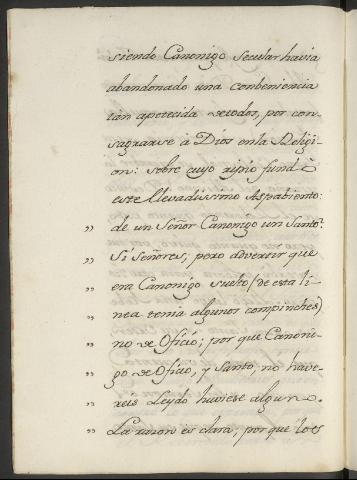 siendo Canonigo Secular havia
abandonado una conbeniencia
tan apetecida de todos, por con
sagrarse à Dios en la Religi
on: sobre cuyo
este llevadissimo Aspabiento:
,, de un Señor Canonigo un Santo?
,, Si Señores, pero advertir que
,, era Canonigo suelto (de esta li
,, nea tenia algunos compinches)
,, no de Oficio; por que Canoni-
,, go de Oficio, y Santo, no have-
,, reis Leydo huviese alguno.
,, La razon es clara; por que los